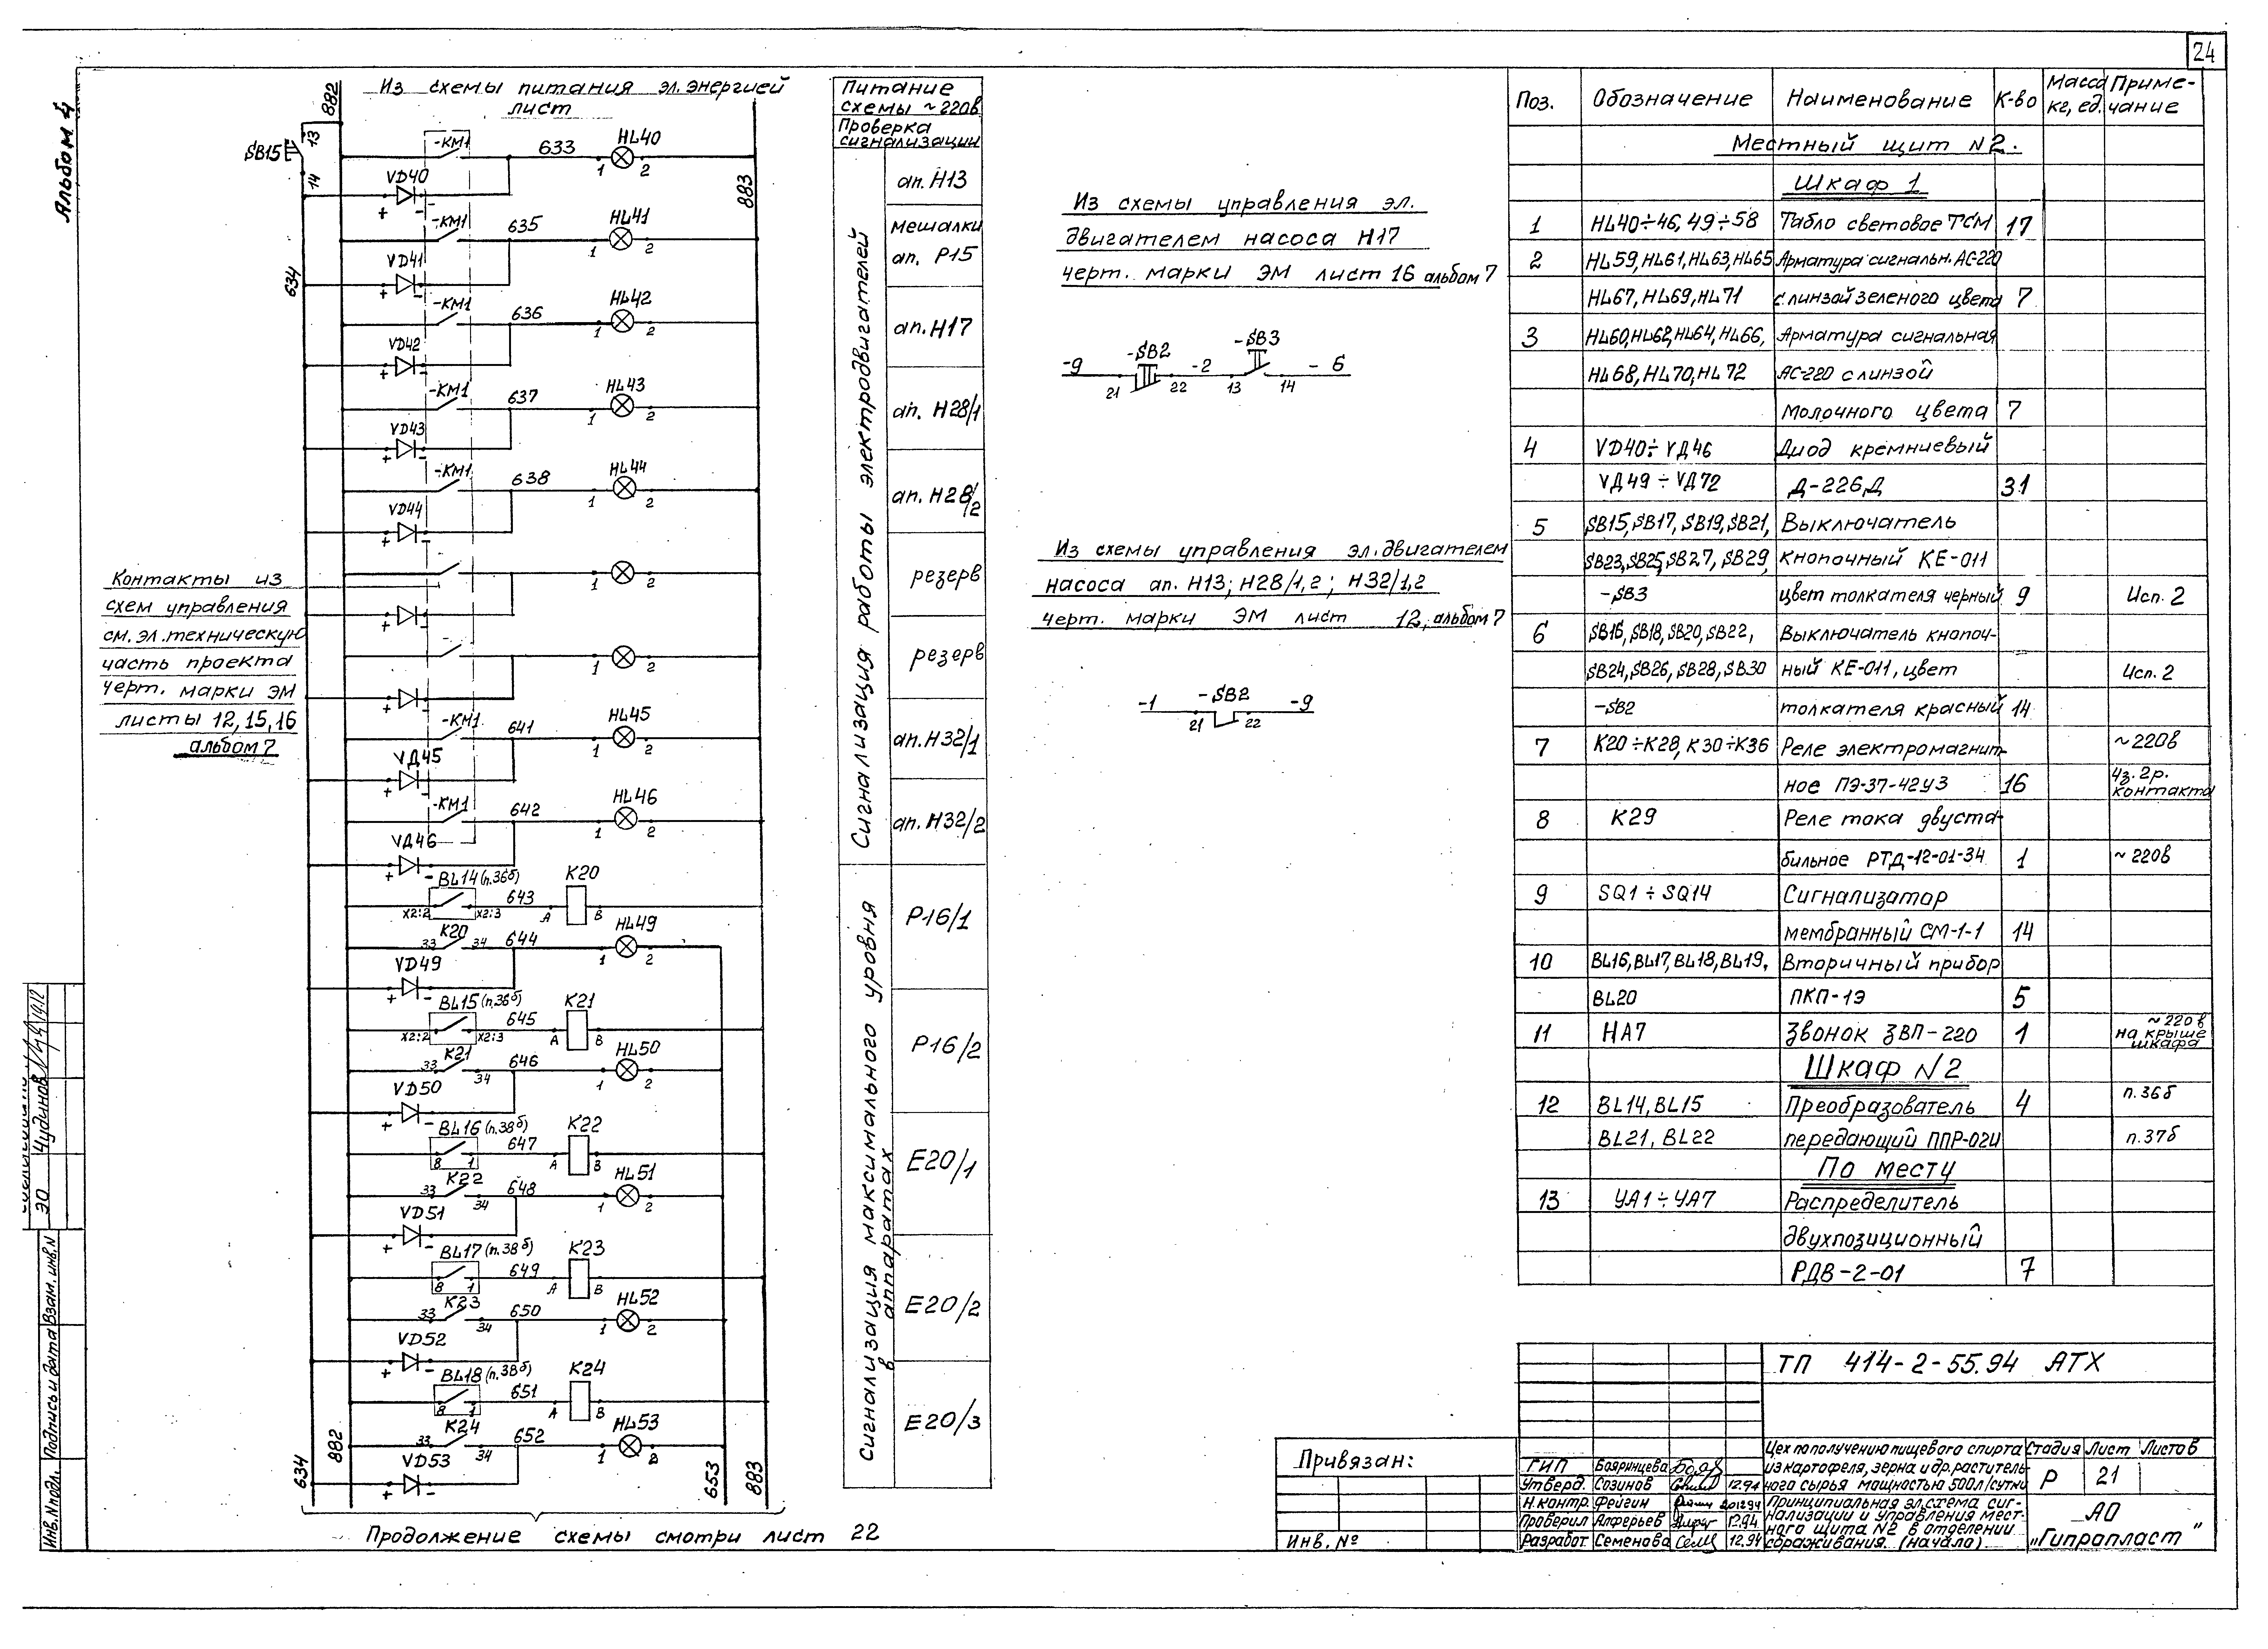 24
Альбом 4
Из схемы питания эл. энергией
лист
882
SB15
13
14
634
883
-КМ1
633
HL40
1
2
VD40
+
-
-КМ1
635
HL41
1
2
VD41
+
-
-КМ1
636
HL42
1
2
VD42
+
-
-КМ1
637
HL43
1
2
VD43
+
-
-КМ1
638
HL44
1
2
VD44
+
-
1
2
+
-
1
2
+
-
-КМ1
641
HL45
1
2
VД45
+
-
-КМ1
642
HL46
1
2
VД46
+
-
BL14 (п.36б)
X2:2
X2:3
643
А
К20
В
33
К20
34
644
HL49
1
2
VD49
+
-
BL15 (п.36б)
X2:2
X2:3
645
А
К21
В
33
К21
34
646
HL50
1
2
VD50
+
-
BL16 (п.38б)
8
1
647
А
К22
В
33
К22
34
648
HL51
1
2
VD51
+
-
BL17 (п.38б)
8
1
649
А
К23
В
33
К23
34
650
HL52
1
2
VD52
+
-
BL18 (п.38б)
8
1
651
А
К24
В
33
К24
34
652
HL53
1
2
VD53
+
-
634
882
653
883
Продолжение схемы смотри лист 22
Контакты из
схем управления
см. эл. техническую
часть проекта
черт. марки ЭМ
листы 12, 15, 16
альбом 7
Питание
схемы ~220в
Проверка
сигнализации
Сигнализация работы электродвигателей
ап. Н13
мешалки
ап. Р15
ап. Н17
ап. Н28/1
ап. Н28/2
резерв
резерв
ап. Н32/1
ап. Н32/2
Сигнализация максимального уровня
в аппаратах
Р16/1
Р16/2
Е20/1
Е20/2
Е20/3
Из схемы управления эл.
двигателем насоса Н17
черт. марки ЭМ лист 16 альбом 7
-9
-SB2
21
22
-2
-SB3
13
14
- 6
Из схемы управления эл. двигателем
насоса ап. Н13; Н28/1,2; Н32/1,2
черт. марки ЭМ лист 12, альбом 7
-1
-SB2
21
22
-9
Поз. Обозначение Наименование К-во Масса кг, ед. Приме-чание
Местный щит N2.
Шкаф 1
1 HL40÷46, 49÷58 Табло световое ТСМ 17
2 HL59, HL61, HL63, HL65 Арматура сигнальн. АС-220
HL67, HL69, HL71 с линзой зеленого цвета 7
3 HL60, HL62, HL64, HL66, Арматура сигнальная
HL68, HL70, HL72 АС-220 с линзой
молочного цвета 7
4 VD40÷VД46 Диод кремниевый
VД49÷VД72 Д-226Д 31
5 SB15, SB17, SB19, SB21, Выключатель
SB23, SB25, SB27, SB29, кнопочный КЕ-011
-SB3 цвет толкателя черный 9 Исп. 2
6 SB16, SB18, SB20, SB22, Выключатель кнопоч-
SB24, SB26, SB28, SB30 ный КЕ-011, цвет Исп. 2
-SB2 толкателя красный 14
7 К20÷К28, К30÷К36 Реле электромагнит- ~220в
ное ПЭ-37-42У3 16 4з. 2р. контакта
8 К29 Реле тока двуста-
бильное РТД-12-01-34 1 ~220в
9 SQ1÷SQ14 Сигнализатор
мембранный СМ-1-1 14
10 BL16, BL17, BL18, BL19, Вторичный прибор
BL20 ПКП-1Э 5
11 НА7 Звонок ЗВП-220 1 ~220в на крыше шкафа
Шкаф N2
12 BL14, BL15 Преобразователь 4 п.36б
BL21, BL22 передающий ППР-02И п.37б
По месту
13 УА1÷УА7 Распределитель
двухпозиционный
РДВ-2-01 7
ТП 414-2-55.94 АТХ
Привязан:
Инв. №
ГИП Бояринцева
Утверд. Созинов 12.94
Н.контр. Фейгин 201294
Проверил Алферьев 12.94
Разработ Семенова 12.94
Цех по получению пищевого спирта
из картофеля, зерна и др. раститель-
ного сырья мощностью 500л/сутки
Стадия Лист Листов
Р 21
Принципиальная эл. схема сиг-
нализации и управления мест-
ного щита N2 в отделении
сбраживания. (начало)
АО
"Гипрапласт"
ЭО Чудинов 19.12
Инв. N подл. Подпись и дата Взам. инв. N